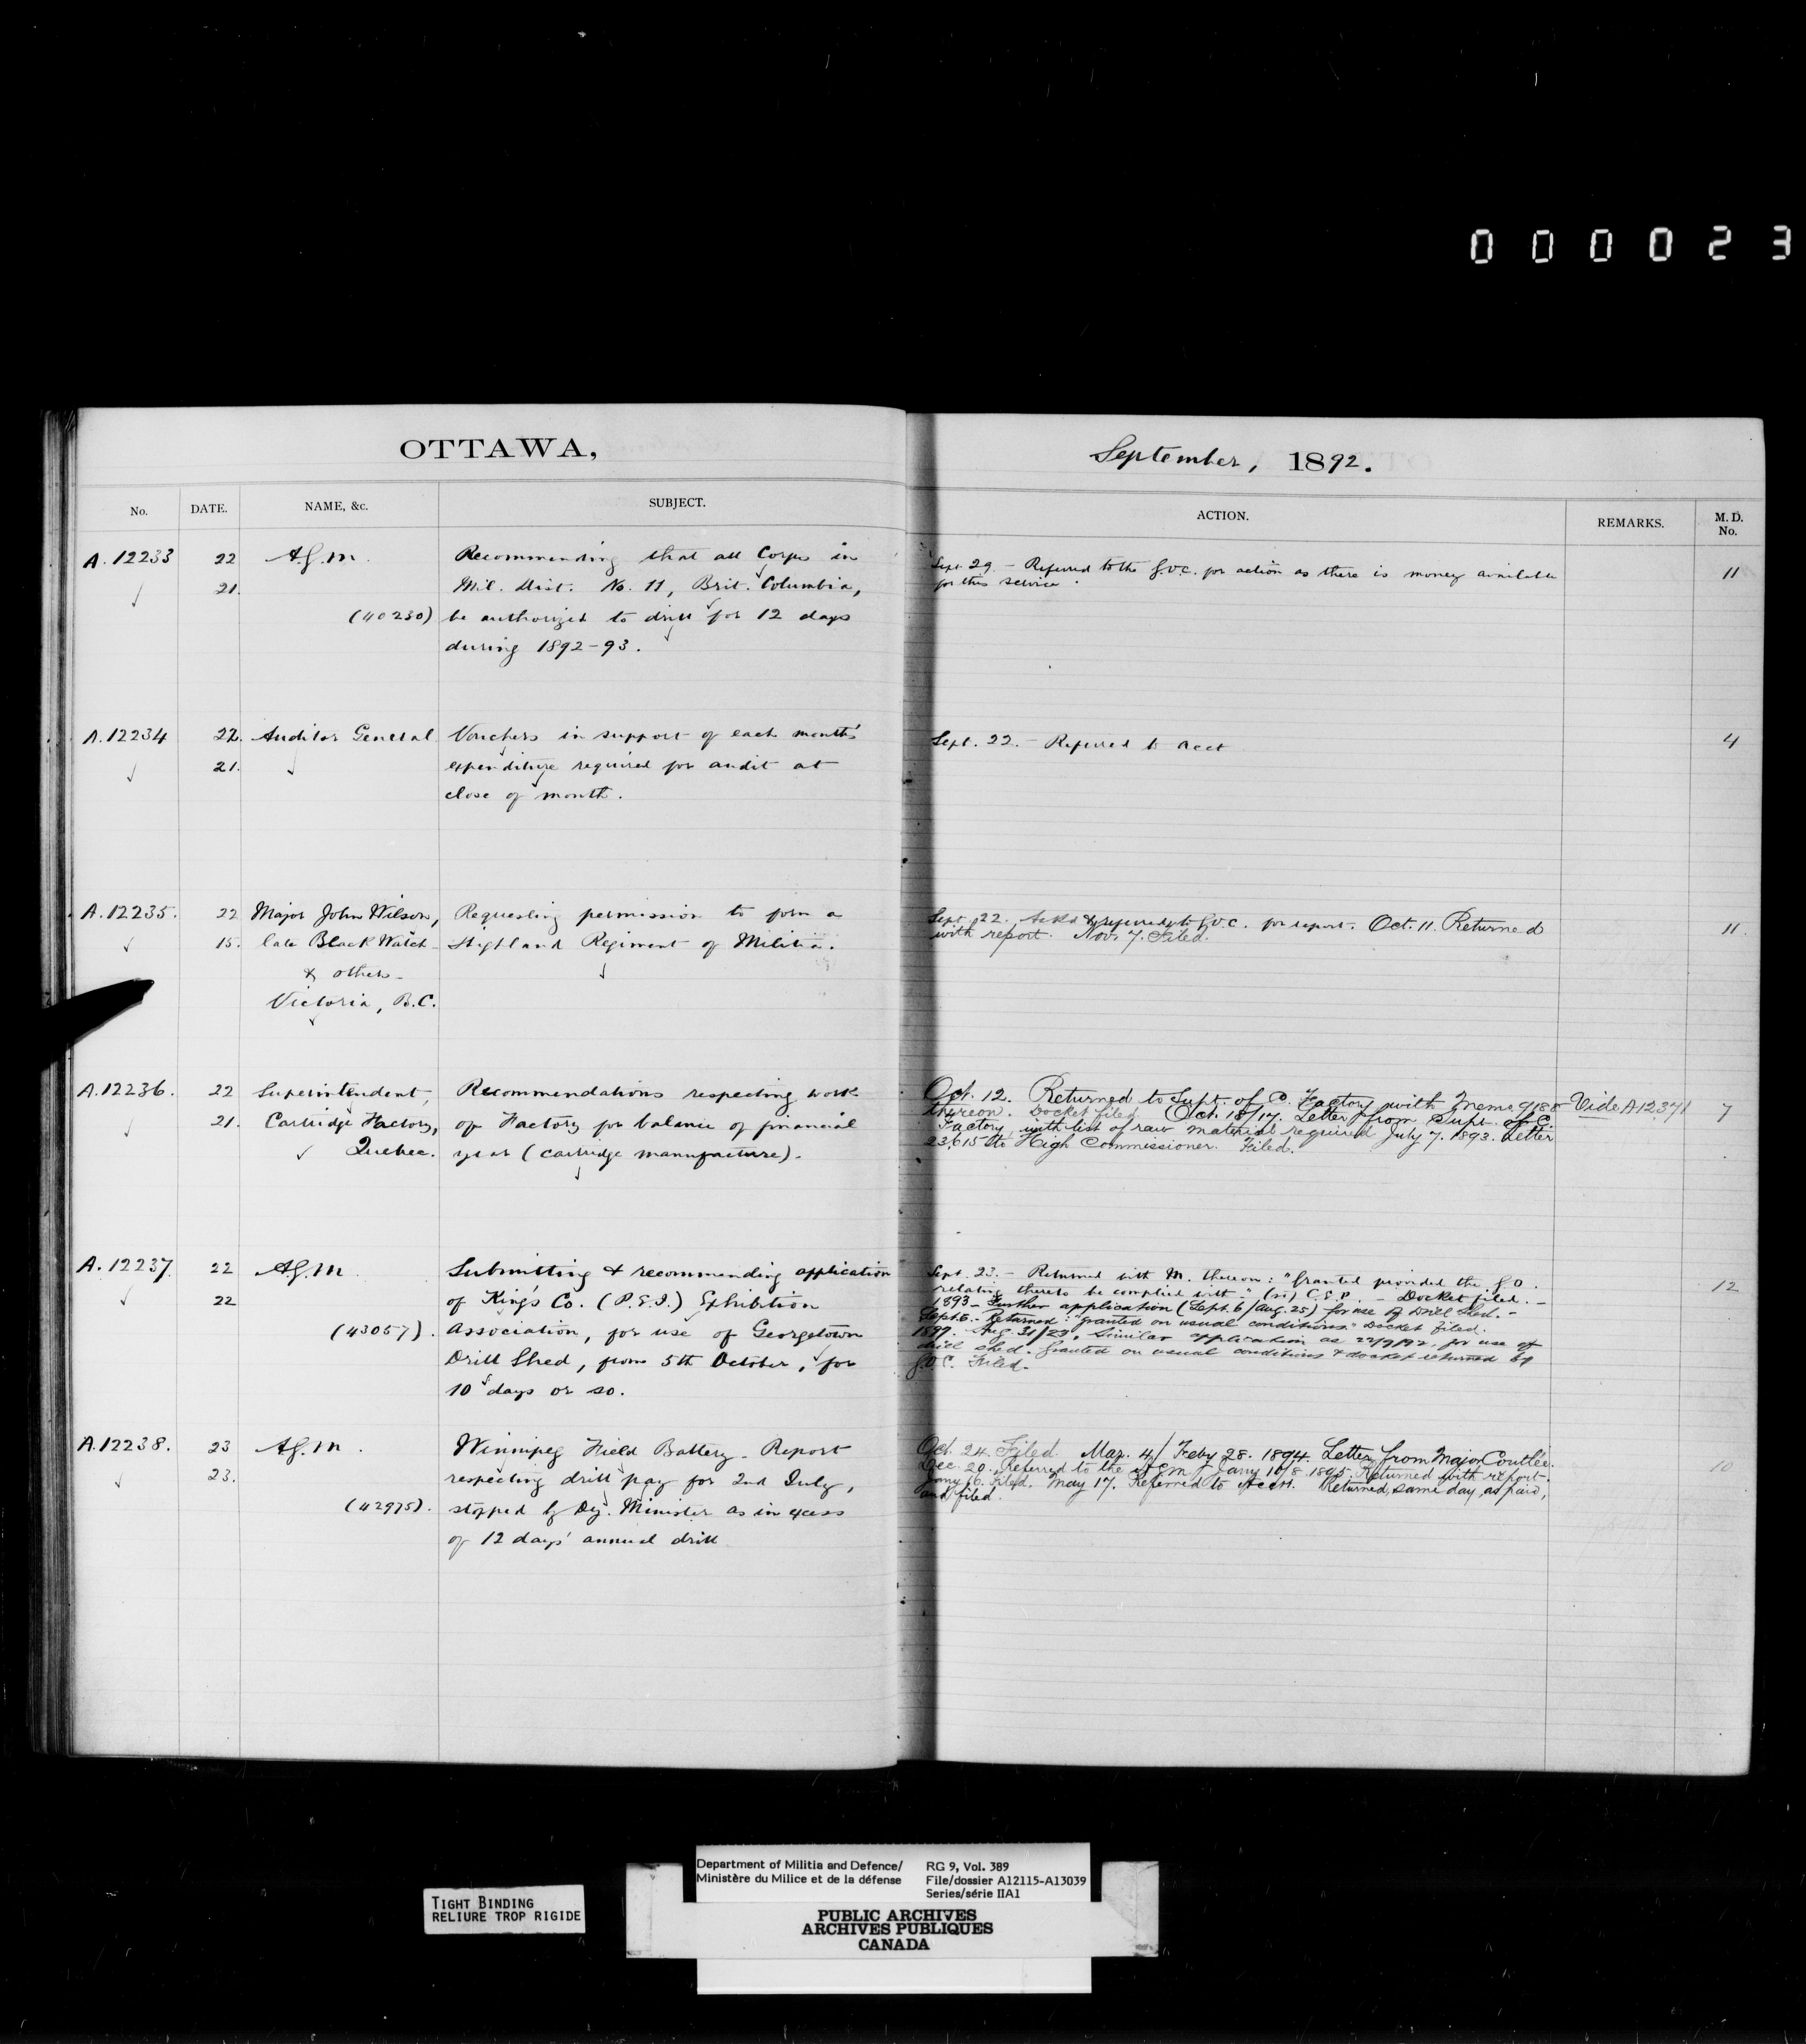 000023
OTTAWA,
September, 1892.
No.
DATE.
NAME, &c.
SUBJECT.
ACTION.
REMARKS.
M. D. No.
A. 12233
22
21.
A.G.M.
(40230)
Recommending that all Corps in
Mil. Dist. No. 11, Brit. Columbia,
be authorized to drill for 12 days
during 1892-93.
Sept. 29. - Referred to the G.O.C. for action as there is money available
for this service.
11
A. 12234
22.
21.
Auditor General
Vouchers in support of each month's
expenditure required for audit at
close of month.
Sept. 22. - Referred to Acct
4
A. 12235.
22
15.
Major John Wilson,
late Black Watch
& others
Victoria, B.C.
Requesting permission to form a
Highland Regiment of Militia.
Sept. 22. Ackd & referred to G.O.C. for report. Oct. 11. Returned
with report. Nov. 7. Filed.
11.
A. 12236.
22
21.
Superintendent,
Cartridge Factory,
Quebec.
Recommendations respecting work
of Factory for balance of financial
year (cartridge manufacture).
Oct. 12. Returned to Supt. of C. Factory with Memo 9188
thereon. Docket filed. Oct. 18/17. Letter from Supt. of C.
Factory with list of raw material required July 7. 1893. Letter
23,615 to High Commissioner. Filed.
Vide A12371
7
A. 12237.
22
22
A.G.M.
(43057).
Submitting & recommending application
of King's Co. (P.E.I.) Exhibition
Association, for use of Georgetown
Drill Shed, from 5th October, for
10 days or so.
Sept. 23. - Returned with M. thereon: "Granted provided the G.O.
relating thereto be complied with." C.E.P. - Docket filed. -
1893 - Further application (Sept. 6/Aug. 25) for use of Drill Shed. -
Sept. 6. - Returned: "granted on usual conditions." Docket filed.
Aug. 31/29. Similar application as 22/9/92, for use of
drill shed. Granted on usual conditions & docket returned by
G.O.C. Filed.
12
A. 12238.
23
23.
A.G.M.
(42975).
Winnipeg Field Battery - Report
respecting drill pay for 2nd July,
stopped by Dy. Minister as in excess
of 12 days' annual drill
Oct. 24. Filed. Mar. 4/Feby 28. 1894. Letter from Major Coutlée.
Dec. 20. Referred to the A.G.M. Jany 10/8 1895. Returned with report.
Jany 16. Filed. May 17. Referred to Acct. Returned, same day, as paid,
and filed.
10
TIGHT BINDING
RELIURE TROP RIGIDE
Department of Militia and Defence/
Ministère du Milice et de la défense
RG 9, Vol. 389
File/dossier A12115-A13039
Series/série IIA1
PUBLIC ARCHIVES
ARCHIVES PUBLIQUES
CANADA